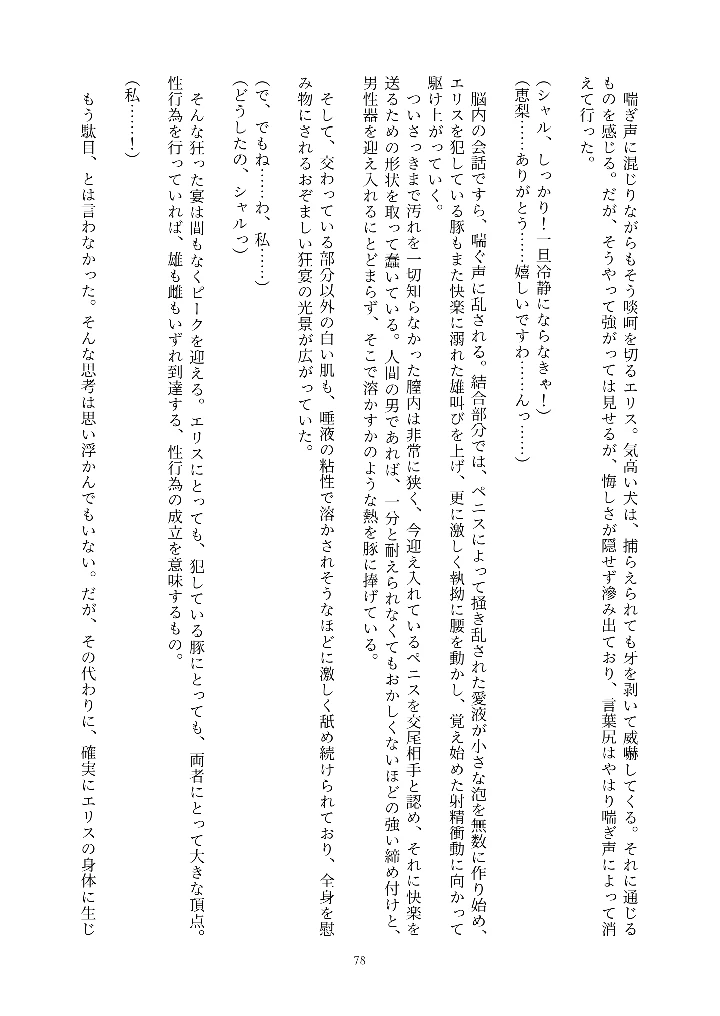 喘ぎ声に混じりながらもそう啖呵を切るエリス。気高い犬は、捕らえられても牙を剥いて威嚇してくる。それに通じる
ものを感じる。だが、そうやって強がっては見せるが、悔しさが隠せず滲み出ており、言葉尻はやはり喘ぎ声によって消
えて行った。
（シャル、しっかり！一旦冷静にならなきゃ！）
（恵梨……ありがとう……嬉しいですわ……んっ……）
脳内の会話ですら、喘ぐ声に乱される。結合部分では、ペニスによって掻き乱された愛液が小さな泡を無数に作り始め、
エリスを犯している豚もまた快楽に溺れた雄叫びを上げ、更に激しく執拗に腰を動かし、覚え始めた射精衝動に向かって
駆け上がっていく。
ついさっきまで汚れを一切知らなかった膣内は非常に狭く、今迎え入れているペニスを交尾相手と認め、それに快楽を
送るための形状を取って蠢いている。人間の男であれば、一分と耐えられなくてもおかしくないほどの強い締め付けと、
男性器を迎え入れるにとどまらず、そこで溶かすかのような熱を豚に捧げている。
そして、交わっている部分以外の白い肌も、唾液の粘性で溶かされそうなほどに激しく舐め続けられており、全身を慰
み物にされるおぞましい狂宴の光景が広がっていた。
（で、でもね……わ、私……）
（どうしたの、シャルっ）
そんな狂った宴は間もなくピークを迎える。エリスにとっても、犯している豚にとっても、両者にとって大きな頂点。
性行為を行っていれば、雄も雌もいずれ到達する、性行為の成立を意味するもの。
（私……！）
もう駄目、とは言わなかった。そんな思考は思い浮かんでもいない。だが、その代わりに、確実にエリスの身体に生じ
78